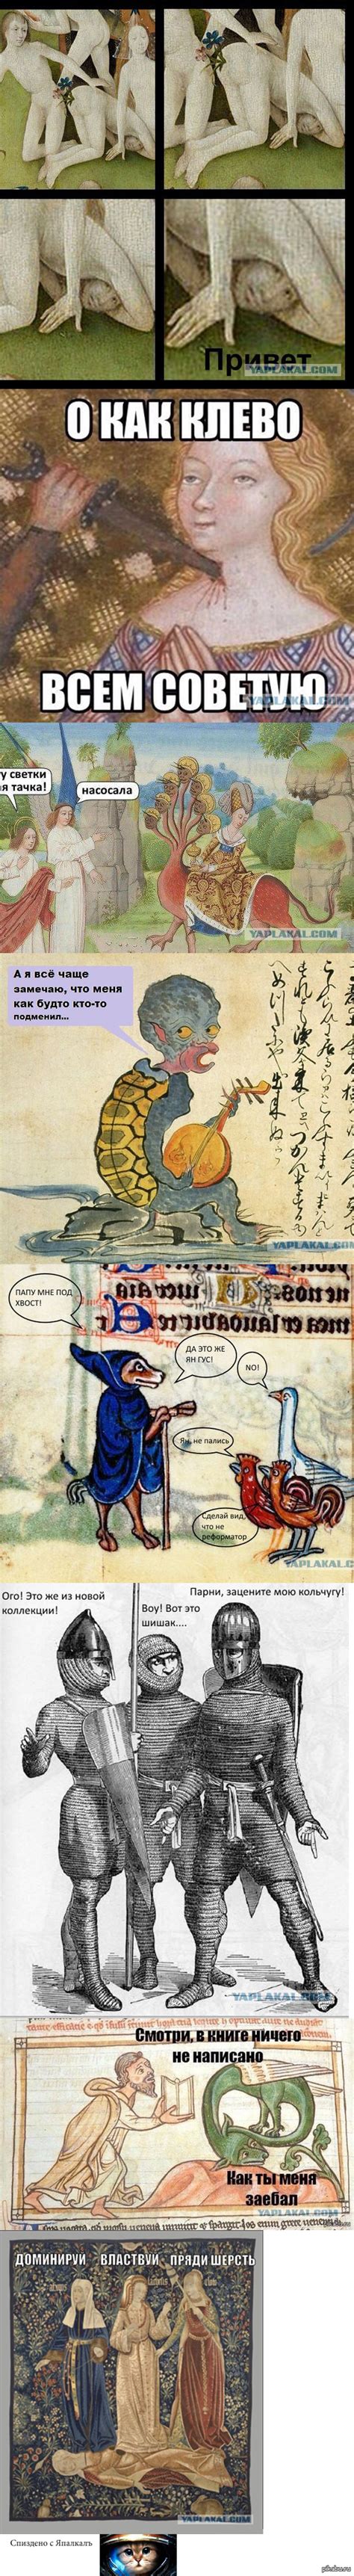 Привет
YAPLAKAL.COM
О КАК КЛЕВО
ВСЕМ СОВЕТУЮ
YAPLAKAL.COM
у светки
я тачка!
насосала
YAPLAKAL.COM
А я всё чаще
замечаю, что меня
как будто кто-то
подменил...
YAPLAKAL.COM
ПАПУ МНЕ ПОД
ХВОСТ!
ДА ЭТО ЖЕ
ЯН ГУС!
NO!
Ян, не пались
Сделай вид,
что не
реформатор
YAPLAKAL.C
Парни, зацените мою кольчугу!
Ого! Это же из новой
коллекции!
Воу! Вот это
шишак....
YAPLAKAL.COM
Смотри, в книге ничего
не написано
Как ты меня
заебал
YAPLAKAL.COM
ДОМИНИРУЙ ВЛАСТВУЙ ПРЯДИ ШЕРСТЬ
YAPLAKAL.COM
Спиздено с Япалкалъ
pikabu.ru